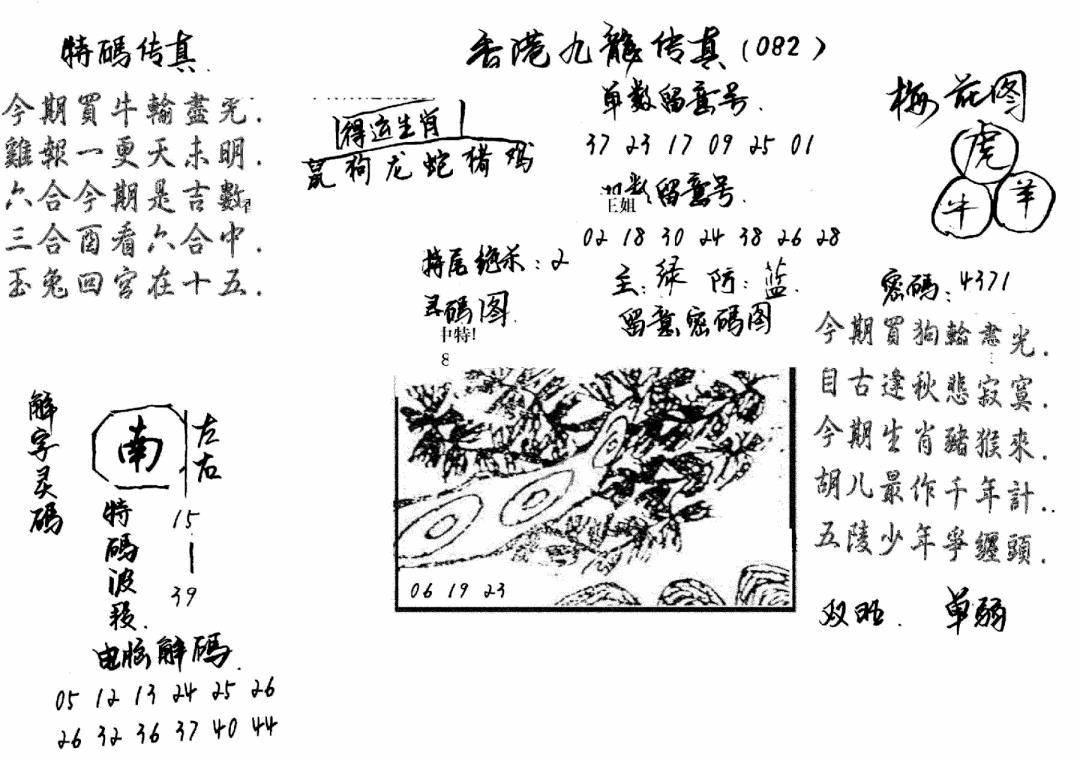 香港九龍传真(082)
特碼传真.
今期買牛輪盡光.
雞報一更天未明.
六合今期是吉數
三合酉看六合中.
玉兔回宮在十五.
得运生肖
鼠狗龙蛇猪鸡
单数留意号.
37 23 17 09 25 01
数留意号.
王姐
02 18 30 24 38 26 28
特尾绝杀:2
主:绿 防:蓝.
码图
中特!
8
留意密码图
06 19 23
梅花图
虎
牛 羊
密碼:4371
今期買狗輪盡光.
自古逢秋悲寂寞.
今期生肖豬猴來.
胡儿最作千年計..
五陵少年爭纏頭.
双旺. 单弱
解字灵码
南
左右
特碼波段.
15
39
电脑解碼.
05 12 13 24 25 26
26 32 36 37 40 44